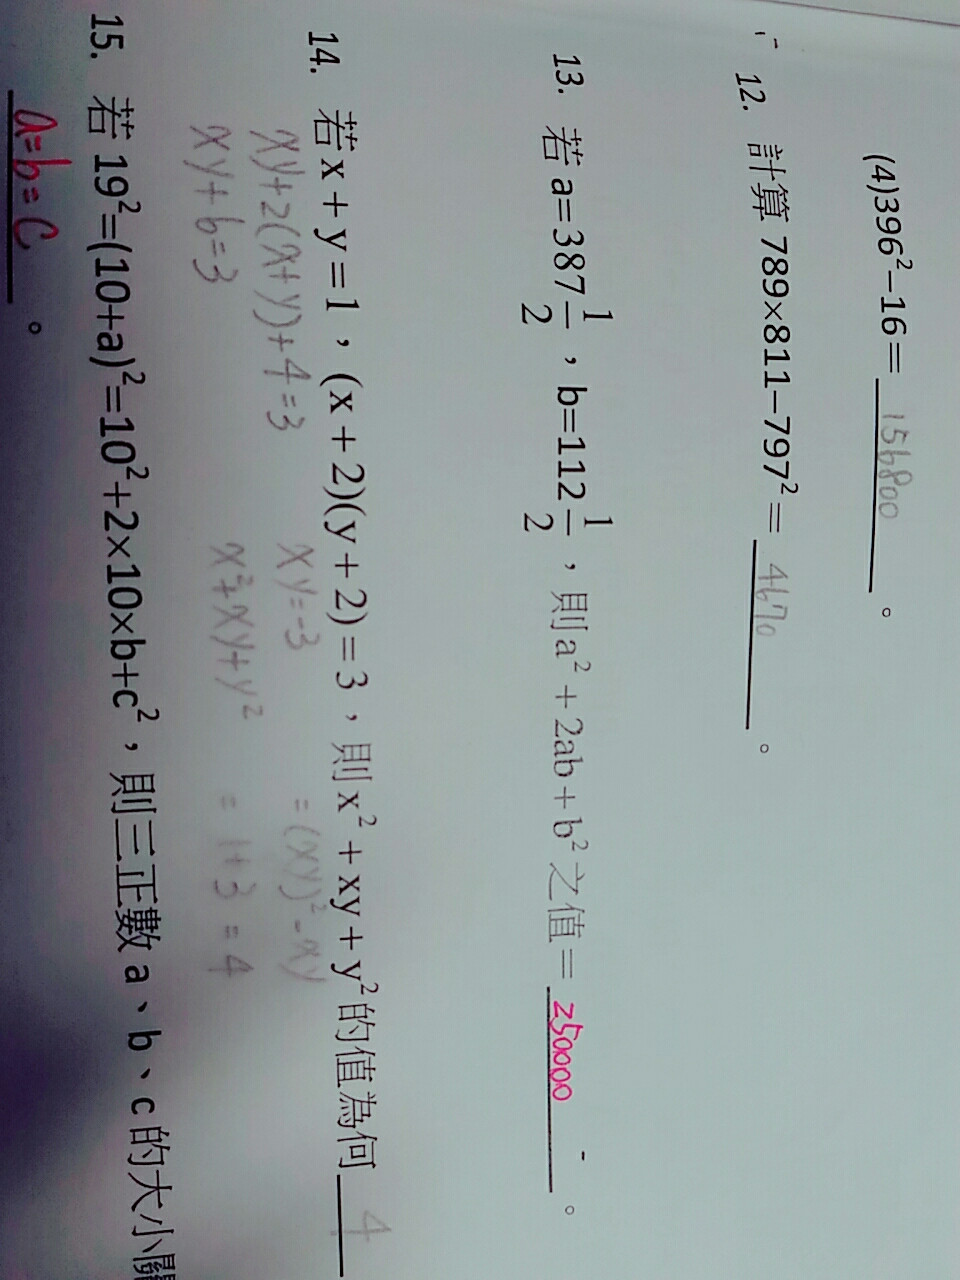 (4)396²−16= 156800 。
12. 計算 789×811−797²= 4670 。
13. 若 a=387 1/2,b=112 1/2,則 a²+2ab+b² 之值= 250000 。
14. 若 x+y=1,(x+2)(y+2)=3,則 x²+xy+y² 的值為何 4
xy+2(x+y)+4=3 xy=-3 =(xy)²-xy
xy+6=3 x²+xy+y² =1+3=4
15. 若 19²=(10+a)²=10²+2×10×b+c²,則三正數 a、b、c 的大小關
a=b=c 。